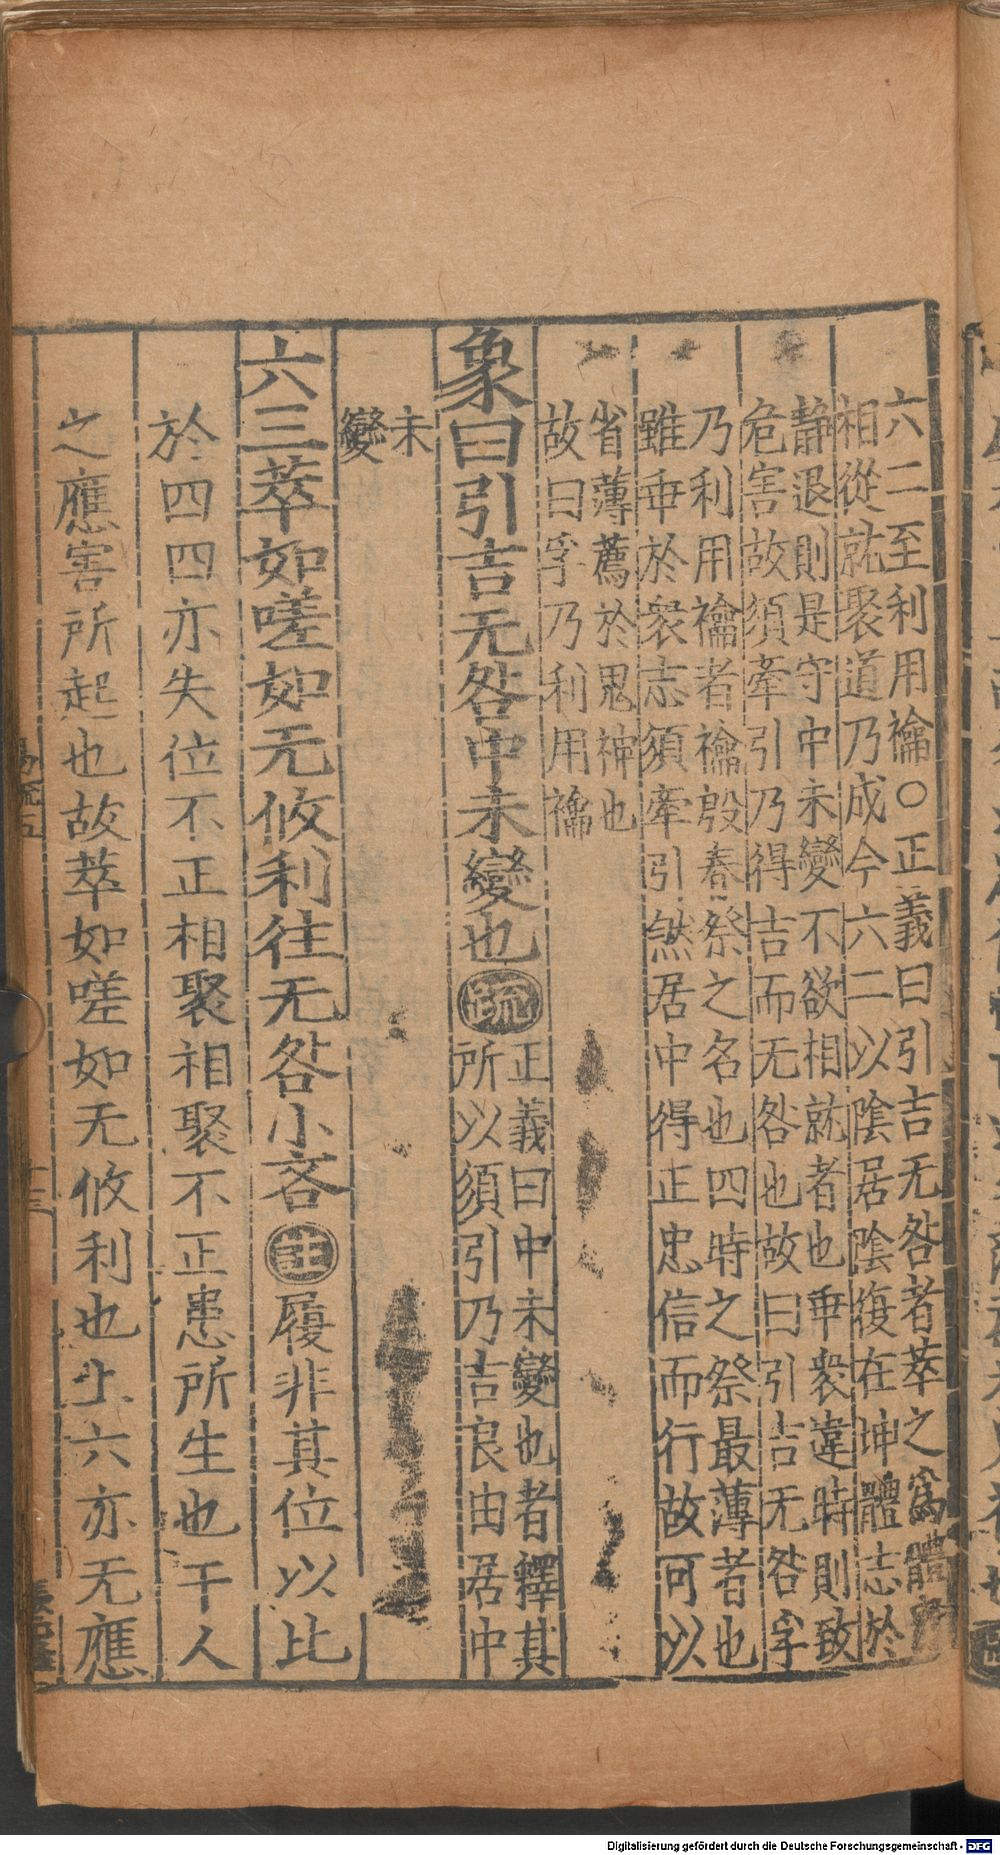 六二至利用禴○正義曰引吉无咎者萃之爲體
相從就聚道乃成今六二以陰居陰復在坤體志於
静退則是守中未變不欲相就者也乖衆違時則致
危害故須牽引乃得吉而无咎也故曰引吉无咎孚
乃利用禴者禴殷春祭之名也四時之祭最薄者也
雖乖於衆志須牽引然居中得正忠信而行故可以
省薄薦於鬼神也
故曰孚乃利用禴
象曰引吉无咎中未變也疏正義曰中未變也者釋其
所以須引乃吉良由居中
未
變
六三萃如嗟如无攸利往无咎小吝註履非其位以比
於四四亦失位不正相聚相聚不正患所生也干人
之應害所起也故萃如嗟如无攸利也上六亦无應
易疏五
十三
Digitalisierung gefördert durch die Deutsche Forschungsgemeinschaft - DFG